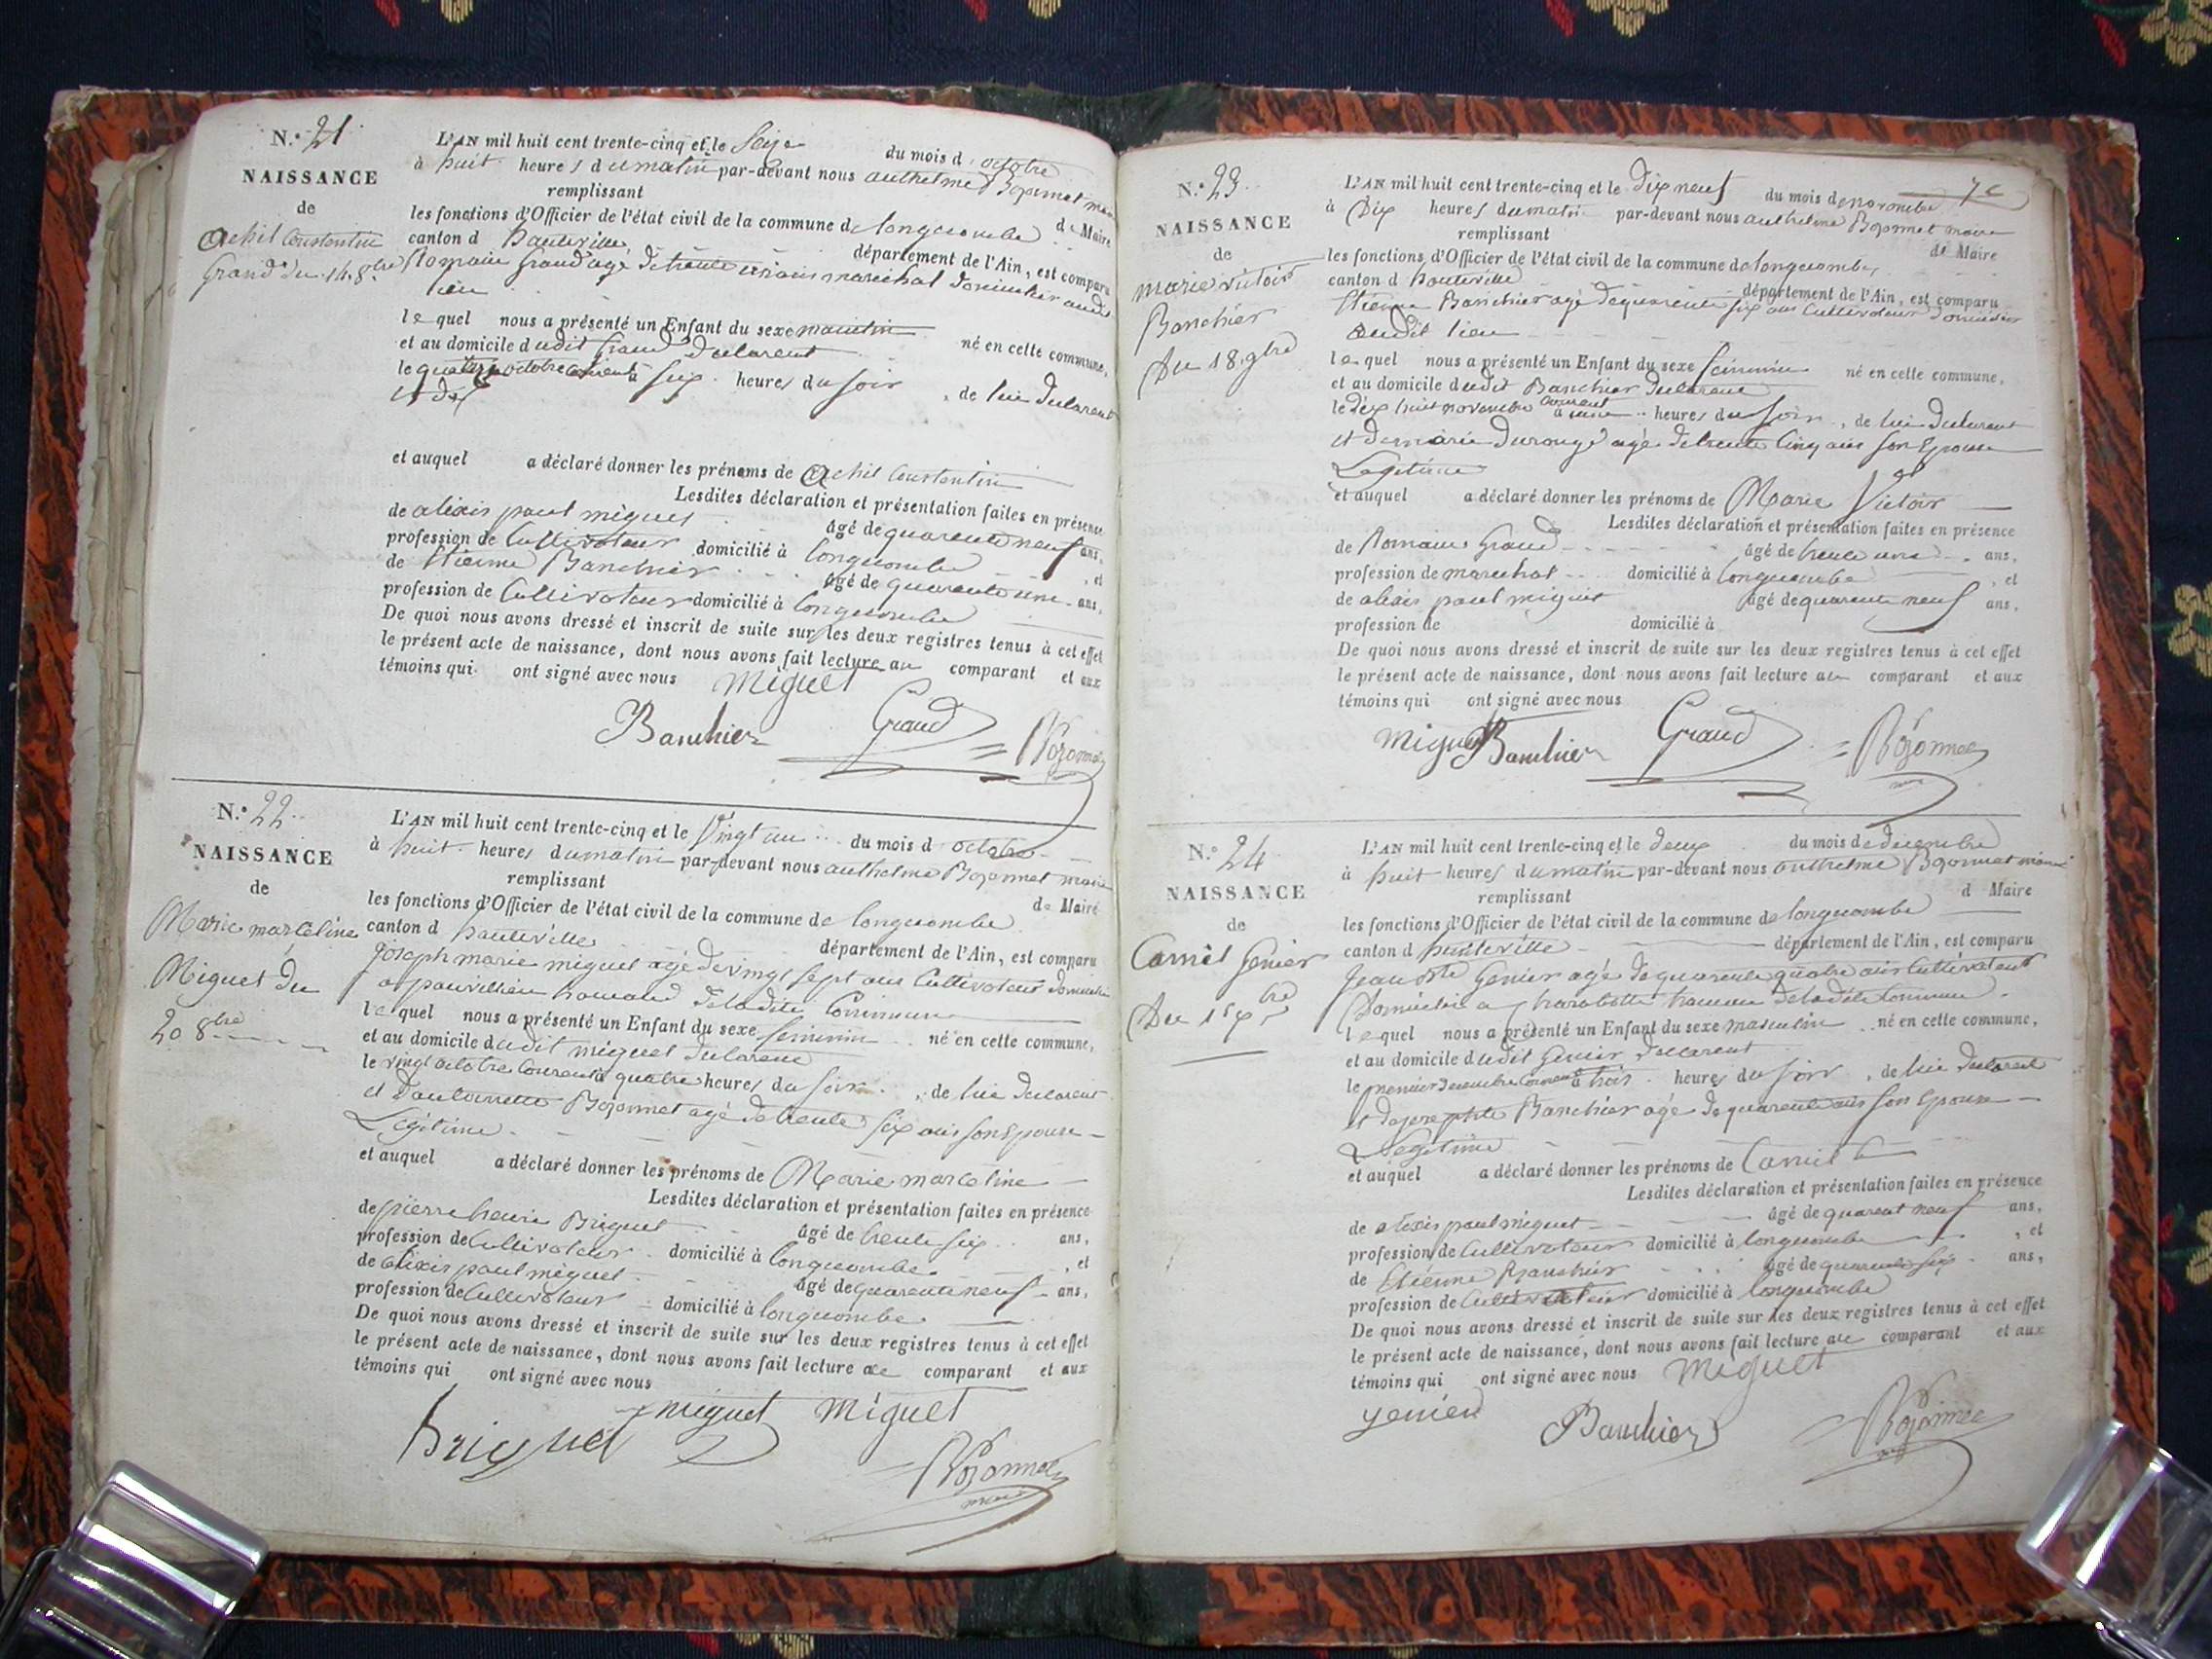 N.° 21
NAISSANCE
de
Achil Constentin
Grand du 14 8.bre
L'AN mil huit cent trente-cinq et le Seize du mois d'octobre
à huit heures du matin par-devant nous authelme Bozonnet maire
remplissant
les fonctions d'Officier de l'état civil de la commune de longecombe de Maire
canton d'hauteville département de l'Ain, est comparu
Romain Grand agé de trente un ans marechal domicilier audit
lieu
lequel nous a présenté un Enfant du sexe masculin né en cette commune,
et au domicile dudit Grand declarent
le quatorze octobre courent à six heures du soir, de lui declarent
et de
et auquel a déclaré donner les prénoms de Achil Constentin
Lesdites déclaration et présentation faites en présence
de alixis paul miguet âgé de quarente neuf ans,
profession de Cultivateur domicilié à longecombe, et
de Etienne Banchier âgé de quarente ans,
profession de Cultivateur domicilié à longecombe
De quoi nous avons dressé et inscrit de suite sur les deux registres tenus à cet effet
le présent acte de naissance, dont nous avons fait lecture au comparant et aux
témoins qui ont signé avec nous miguet
Banchier Grand Bozonnet
N.° 22
NAISSANCE
de
Marie marceline
Miguet du
20 8bre
L'AN mil huit cent trente-cinq et le Vingt un du mois d'octobre
à huit heures du matin par-devant nous authelme Bozonnet maire
remplissant
les fonctions d'Officier de l'état civil de la commune de longecombe de Maire
canton d'hauteville département de l'Ain, est comparu
Joseph marie miguet agé de vingt sept ans Cultivateur domicilier
a hamaud de ladite Commune
lequel nous a présenté un Enfant du sexe feminin né en cette commune,
et au domicile dudit miguet declarent
le vingt octobre courent à quatre heures du soir, de lui declarent
et d'antoinette Bozonnet agé de trente six ans son Epouse
Légitime
et auquel a déclaré donner les prénoms de Marie marceline
Lesdites déclaration et présentation faites en présence
de pierre henri Briguet âgé de trente six ans,
profession de Cultivateur domicilié à longecombe, et
de alixis paul miguet âgé de quarente neuf ans,
profession de Cultivateur domicilié à longecombe
De quoi nous avons dressé et inscrit de suite sur les deux registres tenus à cet effet
le présent acte de naissance, dont nous avons fait lecture au comparant et aux
témoins qui ont signé avec nous
Briguet miguet miguet
Bozonnet
maire
N.° 23
NAISSANCE
de
marie victoir
Banchier
Du 18 9bre
L'AN mil huit cent trente-cinq et le dix neuf du mois de novembre
à Dix heures du matin par-devant nous authelme Bozonnet maire
remplissant
les fonctions d'Officier de l'état civil de la commune de longecombe de Maire
canton d'hauteville département de l'Ain, est comparu
Etienne Banchier agé de quarente six ans Cultivateur domicilier
audit lieu
lequel nous a présenté un Enfant du sexe feminin né en cette commune,
et au domicile dudit Banchier declarent
le dix huit novembre courent à une heures du soir, de lui declarent
et de marie durouge agé de trente cinq ans son Epouse
Legitime
et auquel a déclaré donner les prénoms de Marie Victoir
Lesdites déclaration et présentation faites en présence
de Romain Grand âgé de trente un ans,
profession de marechal domicilié à longecombe, et
de alixis paul miguet âgé de quarente neuf ans,
profession de domicilié à
De quoi nous avons dressé et inscrit de suite sur les deux registres tenus à cet effet
le présent acte de naissance, dont nous avons fait lecture au comparant et aux
témoins qui ont signé avec nous
miguet Banchier Grand Bozonnet
N.° 24
NAISSANCE
de
Camil Genier
Du 1er Xbre
L'AN mil huit cent trente-cinq et le deux du mois de decembre
à huit heures du matin par-devant nous authelme Bozonnet maire
remplissant
les fonctions d'Officier de l'état civil de la commune de longecombe d Maire
canton d'hauteville département de l'Ain, est comparu
Jean Bte Genier agé de quarente quatre ans Cultivateur
Domicilié a hamau de ladite Commune
lequel nous a présenté un Enfant du sexe masculin né en cette commune,
et au domicile dudit Genier declarent
le premier decembre courent à trois heures du soir, de lui declarent
et de josephte Banchier agé de quarente ans son Epouse
Legitime
et auquel a déclaré donner les prénoms de Camil
Lesdites déclaration et présentation faites en présence
de alixis paul miguet âgé de quarent neuf ans,
profession de Cultivateur domicilié à longecombe, et
de Etienne Banchier âgé de quarente six ans,
profession de Cultivateur domicilié à longecombe
De quoi nous avons dressé et inscrit de suite sur les deux registres tenus à cet effet
le présent acte de naissance, dont nous avons fait lecture au comparant et aux
témoins qui ont signé avec nous miguet
genier Banchier Bozonnet